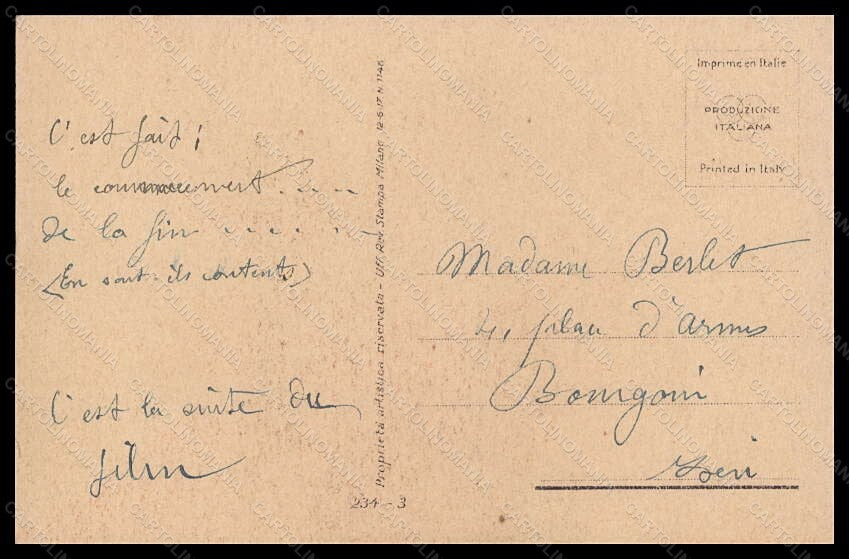 C'est fait ;
le commencement . . . .
de la fin . . . . . .
(En sont-ils contents)
C'est la suite du
film
Proprietà artistica riservata - Uff. Rev. Stampa Milano 12-6-17 N 1146
234 - 3
Imprimé en Italie
PRODUZIONE
ITALIANA
Printed in Italy
Madame Berlet
place d'armes
Bourgoin
Isère
CARTOLINOMANIA